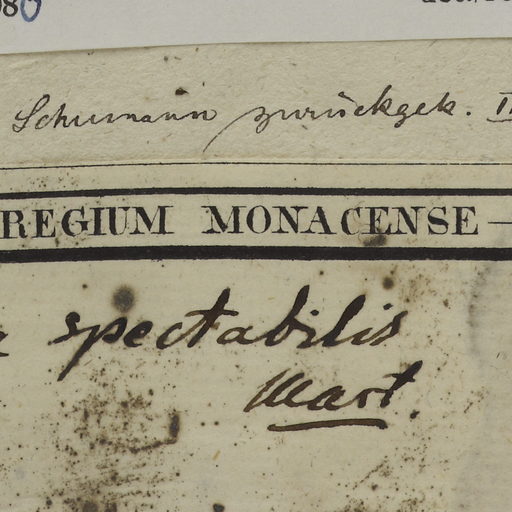 Schumann zurückgek.
REGIUM MONACENSE
spectabilis
Mart.